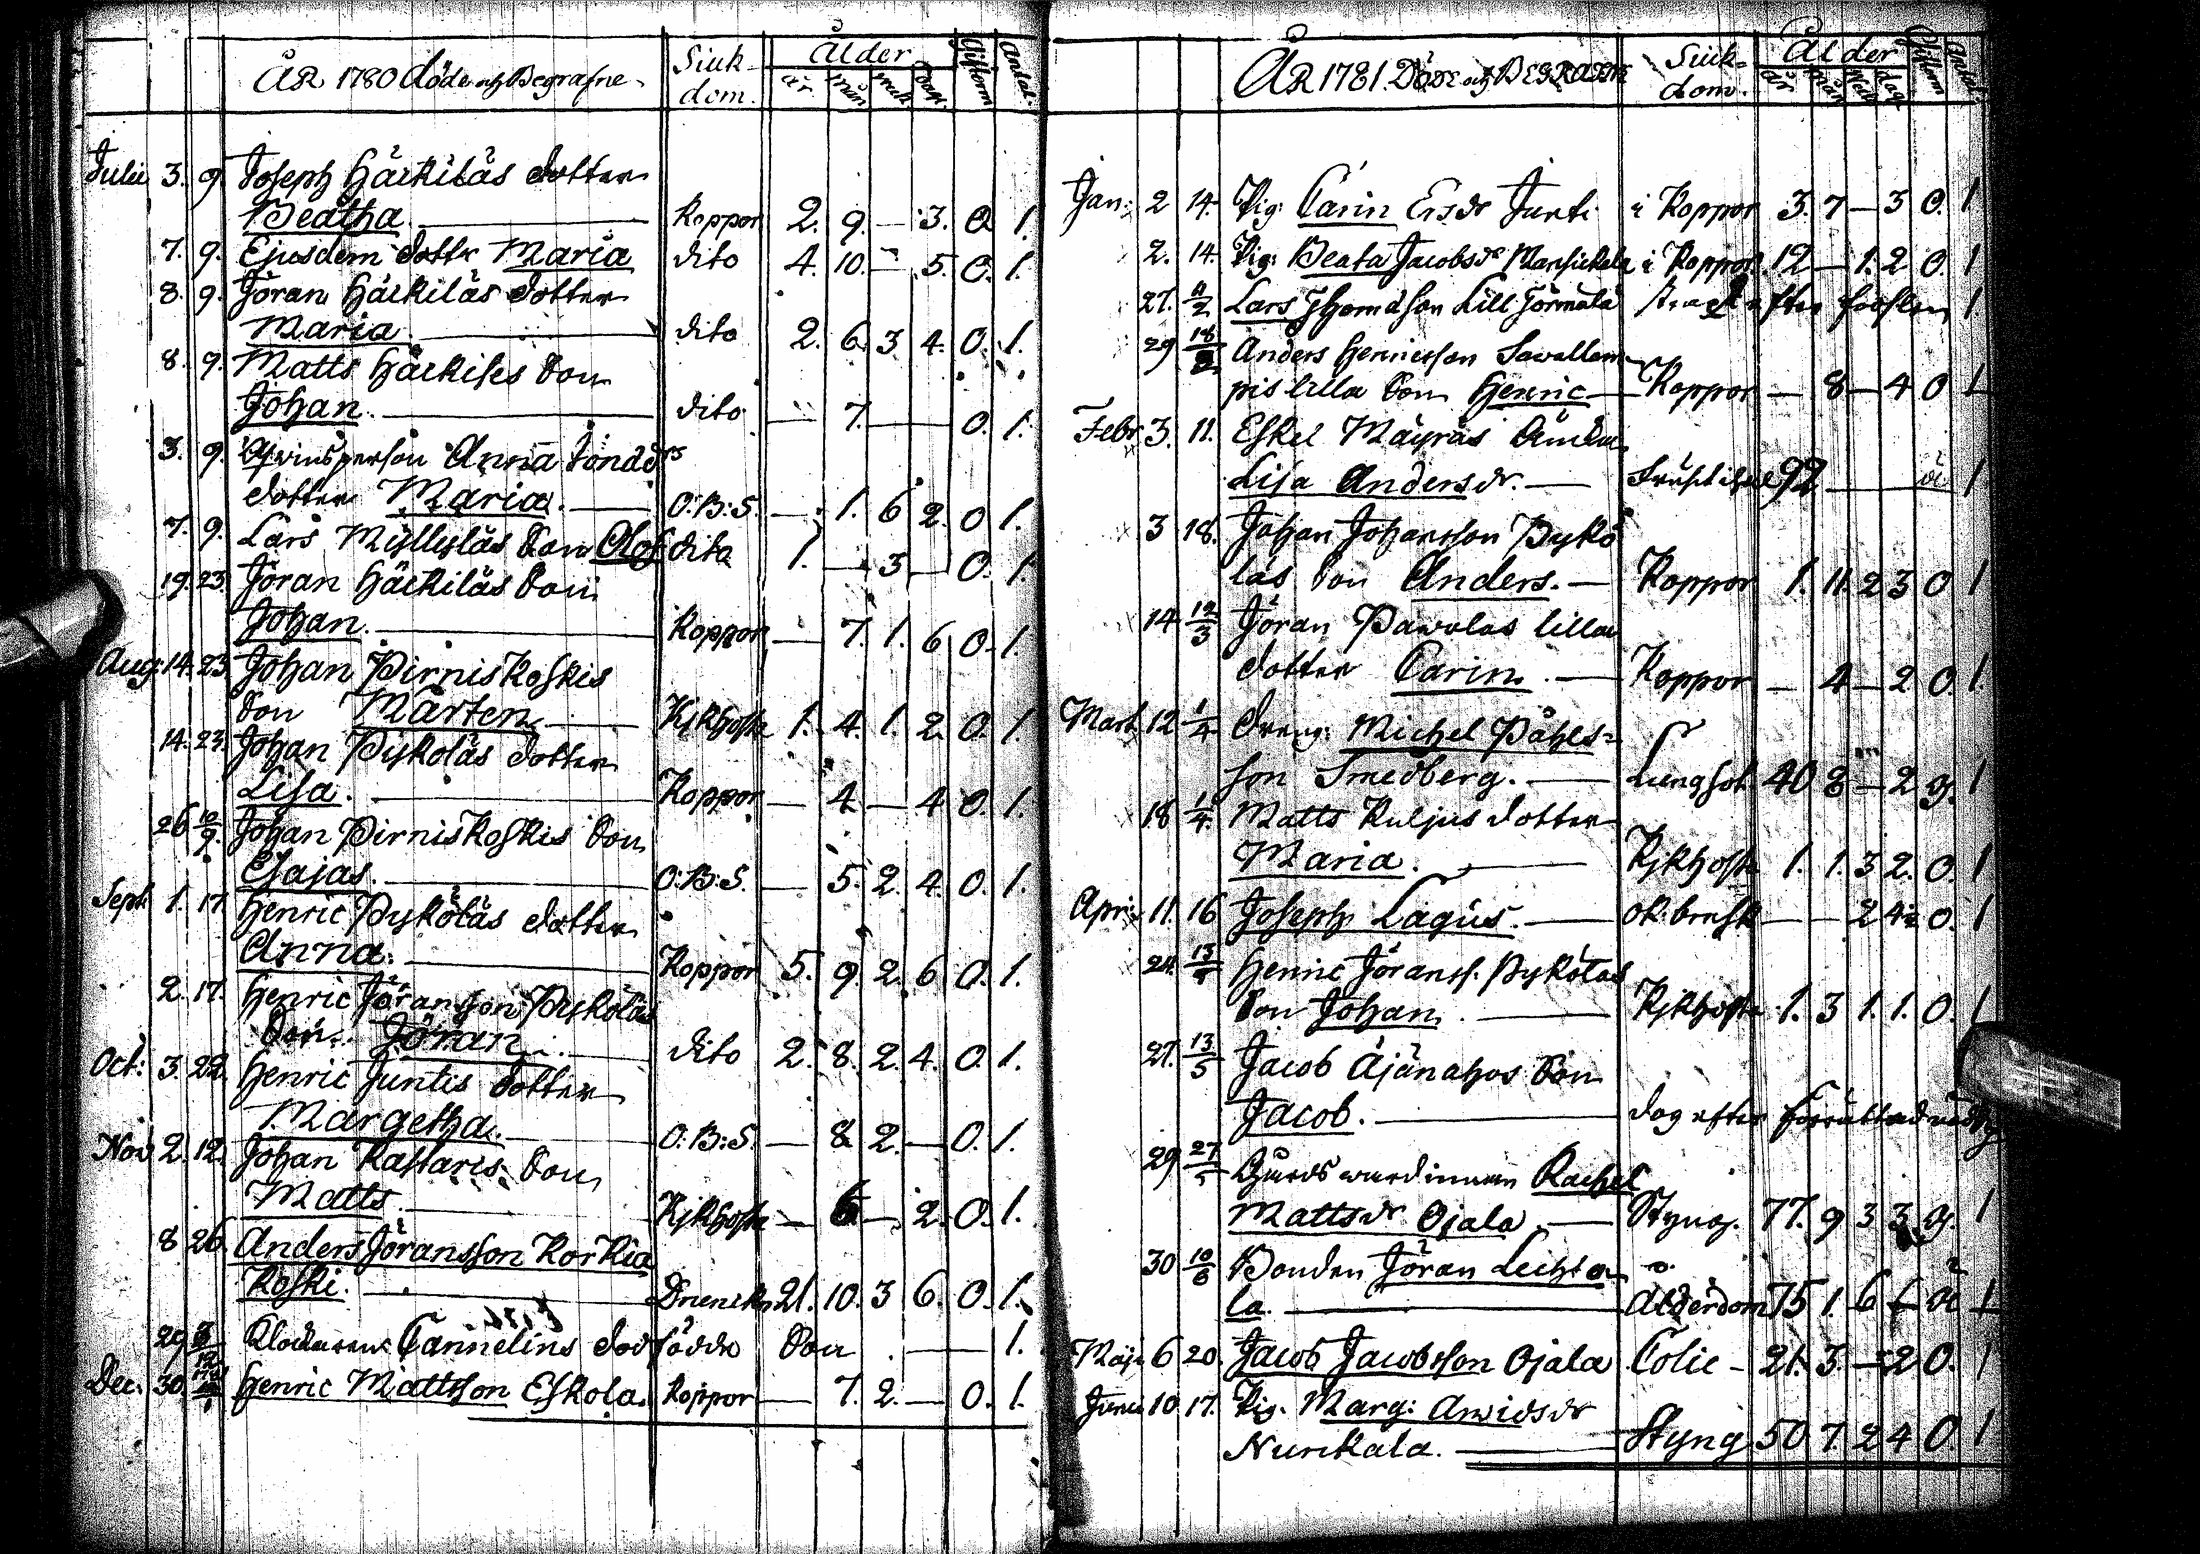 ÅR 1780 döde och Begrafne Siuk- dom. Ålder år mån wek dag Giftorm Antal
Julii 3. 9. Joseph Häckiläs dotter
Beatha. Koppor 2. 9. — 3. O 1.
7. 9. Ejusdem dottr Maria dito 4. 10. — 5. O. 1.
8. 9. Jöran Häckiläs dotter
Maria dito 2. 6. 3 4. O. 1.
8. 9. Matts Häckiles Son
Johan. dito — 7. — O. 1.
3. 9. Qwinsperson Anna
dotter Maria. O:B:S. — 1. 6 2. O 1.
7. 9. Lars Myllyläs Son Olof dito 1. — 3 — O. 1.
19. 23. Jöran Häckiläs Son
Johan. Koppor — 7. 1. 6 O. 1.
Aug: 14. 23. Johan Pirniskoskis
Son Mårten Kjkhosta 1. 4. 1. 2. O. 1.
14. 23. Johan Pyköläs dotter
Lisa. Koppor — 4. — 4 O. 1.
26 10/9. Johan Pirniskoskis Son
Esajas. O:B:S. — 5. 2. 4. O. 1.
Sept. 1. 17. Henric Pyköläs dotter
Anna. Koppor 5. 9. 2. 6 O. 1.
2. 17. Henric Jöransson Pyköläs
Son Jöran dito 2. 8. 2. 4. O. 1.
Oct: 3. 22. Henric Juntis dotter
Margetha. O:B:S. — 8 2. — O. 1.
Nov 2. 12. Johan Kassaris Son
Matts. Kjkhosta — 6 — 2. O. 1.
8 26. Anders Jöransson Korkia
koski. 21. 10. 3 6. O. 1.
29 Klockaren Cannelins dödfödde Son — 1.
Dec. 30. Henric Mattsson Eskola. Koppor — 7. 2. — O. 1.
ÅR 1781. Döde och BEGRAFNE Siuk- dom. Ålder år mån wek dag Giftorm Antal.
Jan: 2 14. Pig: Carin Ersdr Junti i Koppor 3. 7 — 3 O. 1
2. 14. Pig: Beata Jacobsdr Mansickala i Koppor. 12 — 1. 2 O. 1
27. 11/2 Lars Thomasson Lill Jormala efter 1.
29 18/2 Anders Henricsson Sawallam-
pis lilla Son Henric Koppor — 8 — 4 O 1
Febr. 3. 11. Eskel Mäyräs Änka
Lisa Andersdr. — 92 — ä 1
3 18. Johan Johansson Pykö
läs Son Anders. — Koppor 1. 11. 2 3 O 1
14 12/3 Jöran Pawolas lilla
dotter Carin. — Koppor — 4 — 2 O. 1.
Mart. 12 1/4 dreng: Michel Påhls-
son Smedberg. — Lungsot. 40 8 — 2 g. 1
18 1/4. Matts Kuljus dotter
Maria. Kjkhosta 1. 1. 3 2. O. 1
Apr: 11. 16 Joseph Lagus. — ok. brusk — — 2 4 O. 1
24. 13/5 Henric Jöranss. Pykölas
Son Johan. Kjkhosta 1. 3 1. 1. O. 1
27. 13/5 Jacob Äjänahos Son
Jacob. dog efter
29 27/5 Gårds wärdinnan Rachel
Mattsdr Ojala — Styng. 77. 9 3 3 g. 1
30 10/6 Bonden Jöran Lechto
la. Ålderdom 75 1. 6 6 ä 1
Maji 6 20. Jacob Jacobsson Ojala Colic — 21. 3. — 2 O. 1
Junii 10 17. Pig. Marg: Arwidsdr
Nunkala. Styng 50 7. 2 4 O. 1